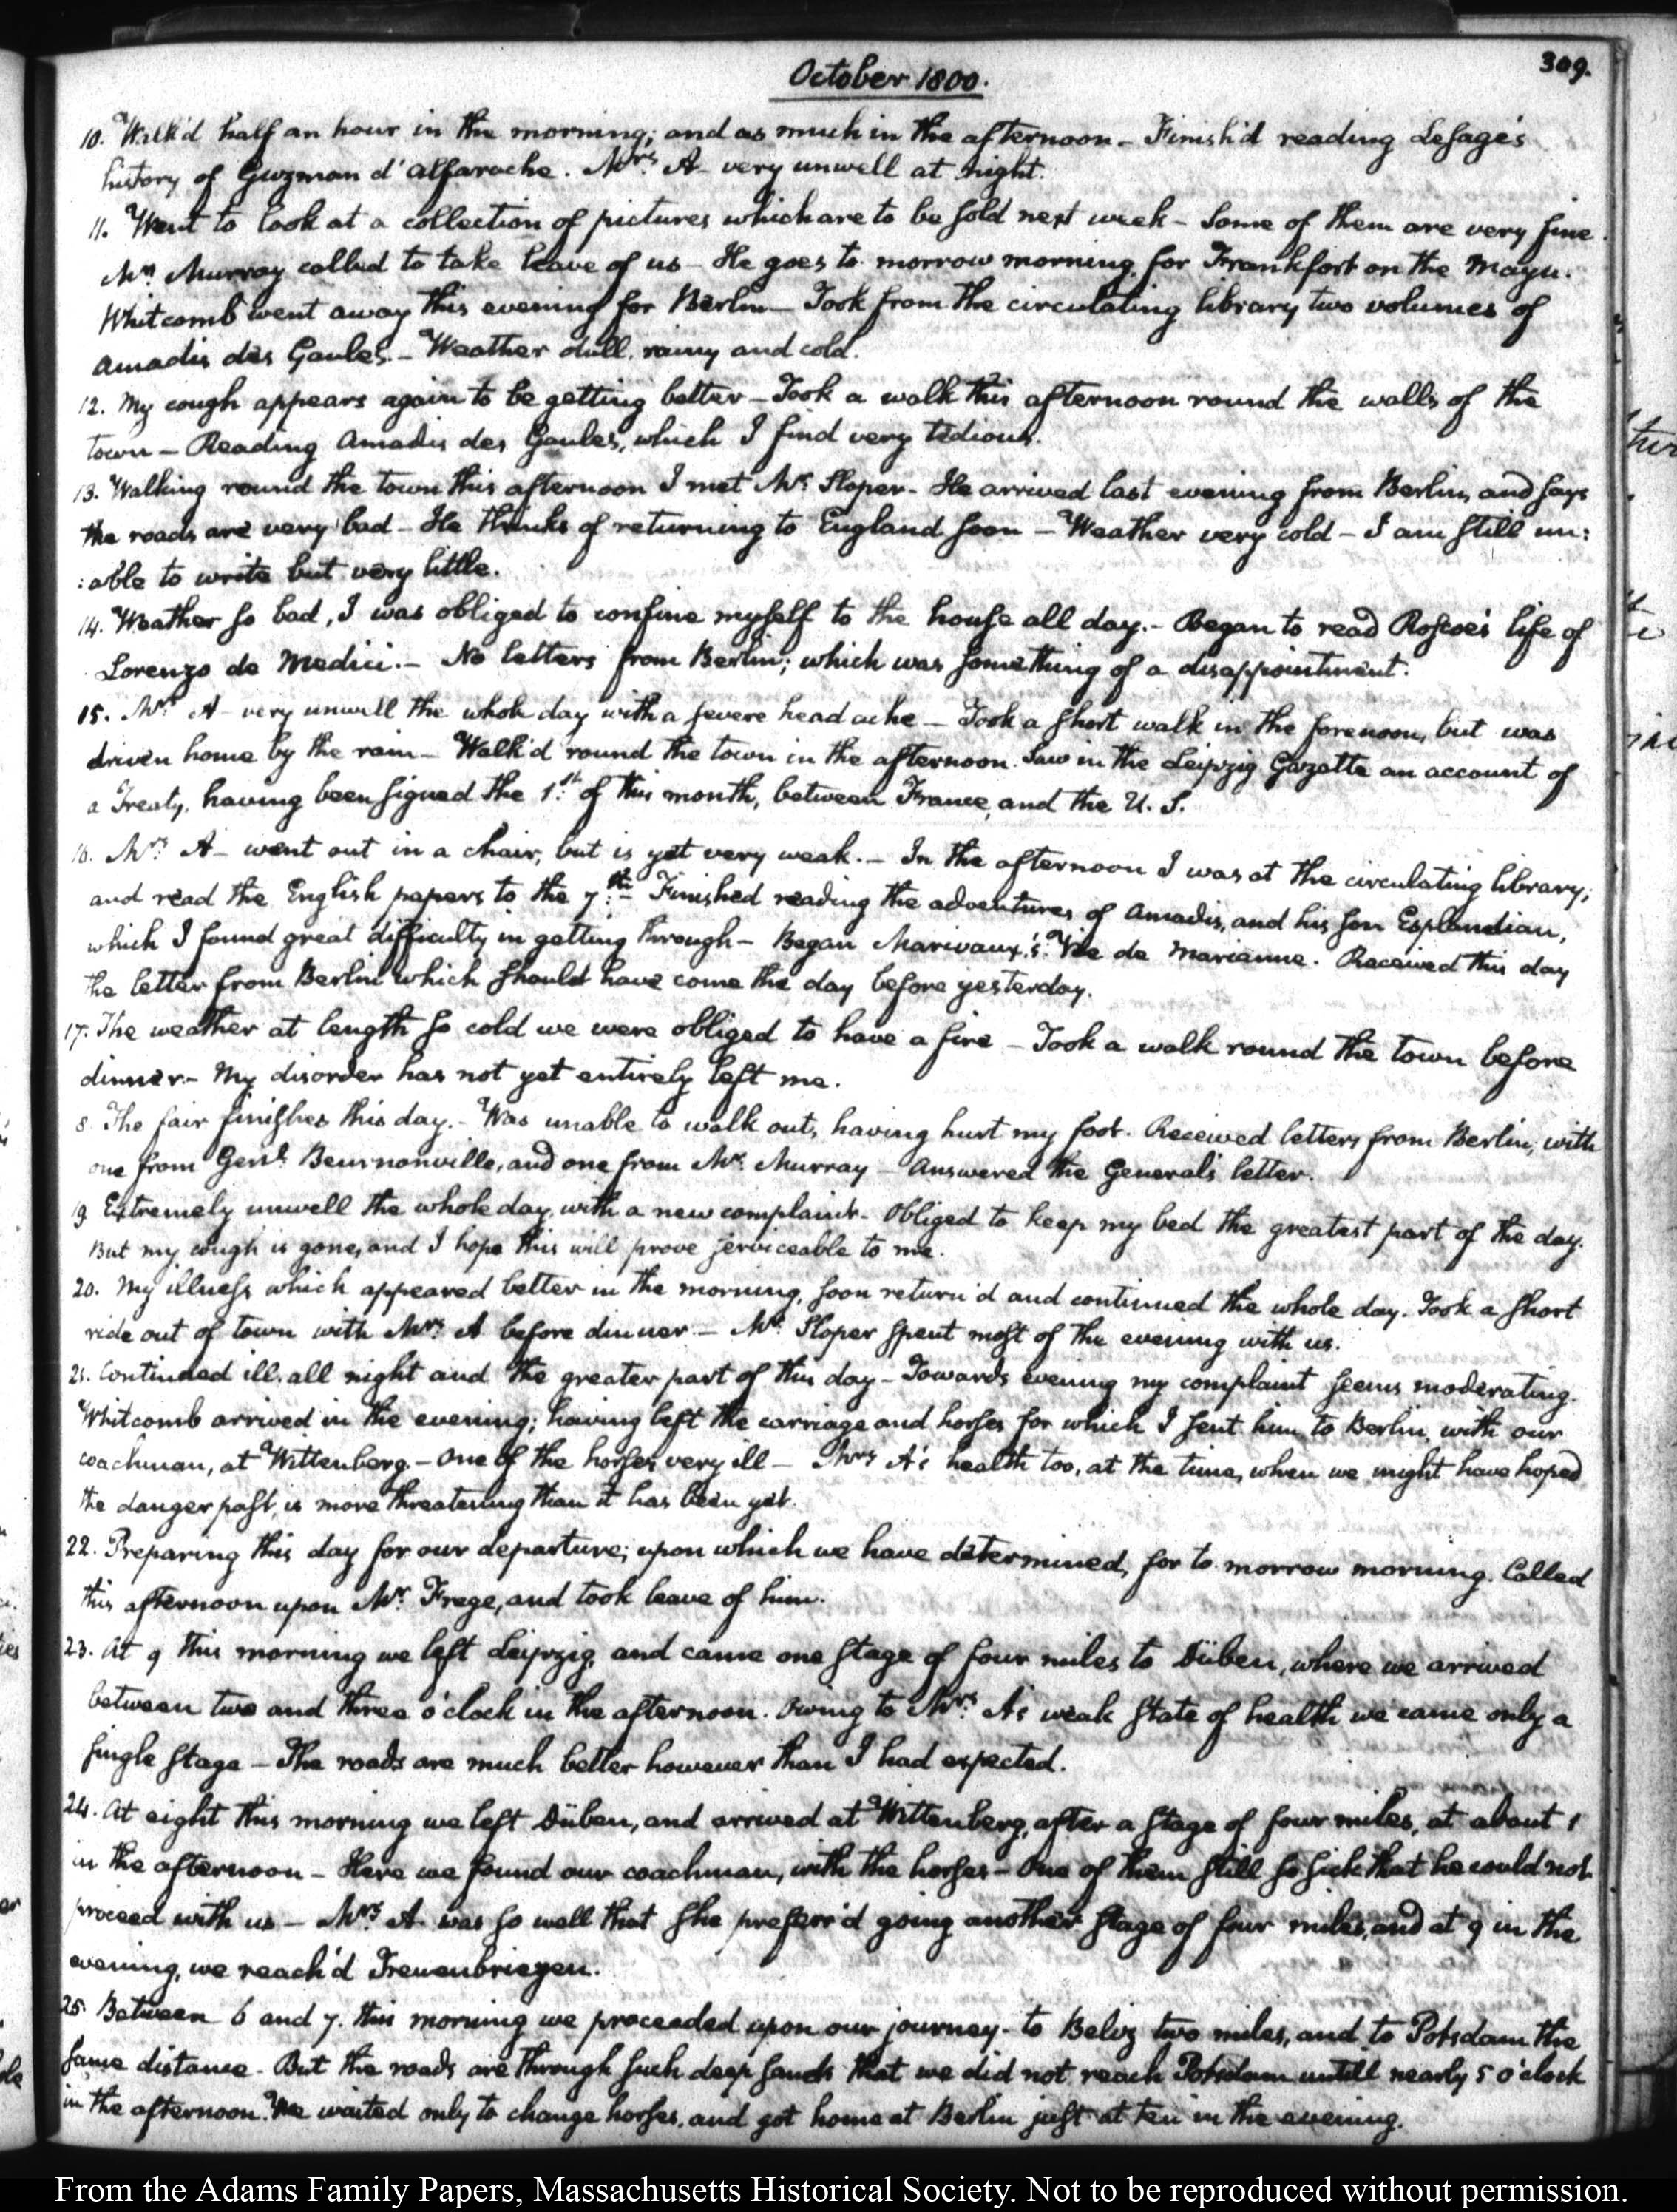 October 1800.
309.
10. Walk'd half an hour in the morning; and as much in the afternoon - Finish'd reading LeSage's
history of Guzman d'Alfarache. Mrs. A- very unwell at night.
11. Went to look at a collection of pictures which are to be sold next week - Some of them are very fine.
Mr. Murray called to take leave of us - He goes to-morrow morning for Frankfort on the Mayn.
Whitcomb went away this evening for Berlin - Took from the circulating library two volumes of
Amadis des Gaules. - Weather dull, rainy and cold.
12. My cough appears again to be getting better - Took a walk this afternoon round the walls of the
town - Reading Amadis des Gaules, which I find very tedious.
13. Walking round the town this afternoon I met Mr. Sloper - He arrived last evening from Berlin, and says
the roads are very bad - He thinks of returning to England soon - Weather very cold - I am still un:
:able to write but very little.
14. Weather so bad, I was obliged to confine myself to the house all day. - Began to read Roscoe's life of
Lorenzo de Medici. - No letters from Berlin; which was something of a disappointment.
15. Mrs. A- very unwell the whole day with a severe head ache - Took a short walk in the forenoon, but was
driven home by the rain - Walk'd round the town in the afternoon. Saw in the Leipzig Gazette an account of
a Treaty, having been signed the 1st. of this month, between France, and the U. S.
16. Mrs. A- went out in a chair, but is yet very weak. - In the afternoon I was at the circulating library;
and read the English papers to the 7th. - Finished reading the adventures of Amadis, and his son Esplandian,
which I found great difficulty in getting through - Began Marivaux's Vie de Marianne. Received this day
the letter from Berlin which should have come the day before yesterday.
17. The weather at length so cold we were obliged to have a fire - Took a walk round the town before
dinner - My disorder has not yet entirely left me.
8. The fair finishes this day. - Was unable to walk out, having hurt my foot. Received letters from Berlin, with
one from Genl. Beurnonville, and one from Mr. Murray - Answered the General's letter.
19. Extremely unwell the whole day, with a new complaint - Obliged to keep my bed the greatest part of the day.
But my cough is gone, and I hope this will prove serviceable to me.
20. My illness which appeared better in the morning, soon return'd and continued the whole day. Took a short
ride out of town with Mrs. A before dinner - Mr. Sloper spent most of the evening with us.
21. Continued ill, all night and the greater part of this day - Towards evening my complaint seems moderating.
Whitcomb arrived in the evening; having left the carriage and horses for which I sent him to Berlin, with our
coachman, at Wittenberg. - One of the horses very ill - Mrs A's health too, at the time, when we might have hoped
the danger past, is more threatening than it has been yet.
22. Preparing this day for our departure; upon which we have determined, for to-morrow morning. Called
this afternoon upon Mr. Frege, and took leave of him.
23. At 9 this morning we left Leipzig, and came one stage of four miles to Düben, where we arrived
between two and three o'clock in the afternoon. Owing to Mrs. A's weak state of health we came only a
single stage - The roads are much better however than I had expected.
24. At eight this morning we left Düben, and arrived at Wittenberg, after a stage of four miles, at about 1
in the afternoon - Here we found our coachman, with the horses - One of them still so sick that he could not
proceed with us - Mrs A- was so well that she preferr'd going another stage of four miles, and at 9 in the
evening, we reach'd Treuenbriezen.
25. Between 6 and 7. this morning we proceeded upon our journey - to Belitz two miles, and to Potsdam the
same distance - But the roads are through such deep sands that we did not reach Potsdam untill nearly 5 o'clock
in the afternoon. We waited only to change horses, and got home at Berlin just at ten in the evening.
From the Adams Family Papers, Massachusetts Historical Society. Not to be reproduced without permission.